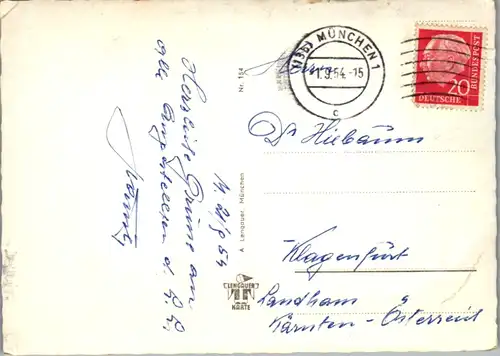 Herzliche Grüsse an
alle Angestellten d. L. R.
M. 31/8 54
Nr. 154
A. Lengauer, München
LENGAUER
KARTE
(13b) MÜNCHEN 1
-1.9.54.-15
c
20
DEUTSCHE
BUNDESPOST
Dr Hiebaum
Klagenfurt
Landham
Kärnten - Österreich